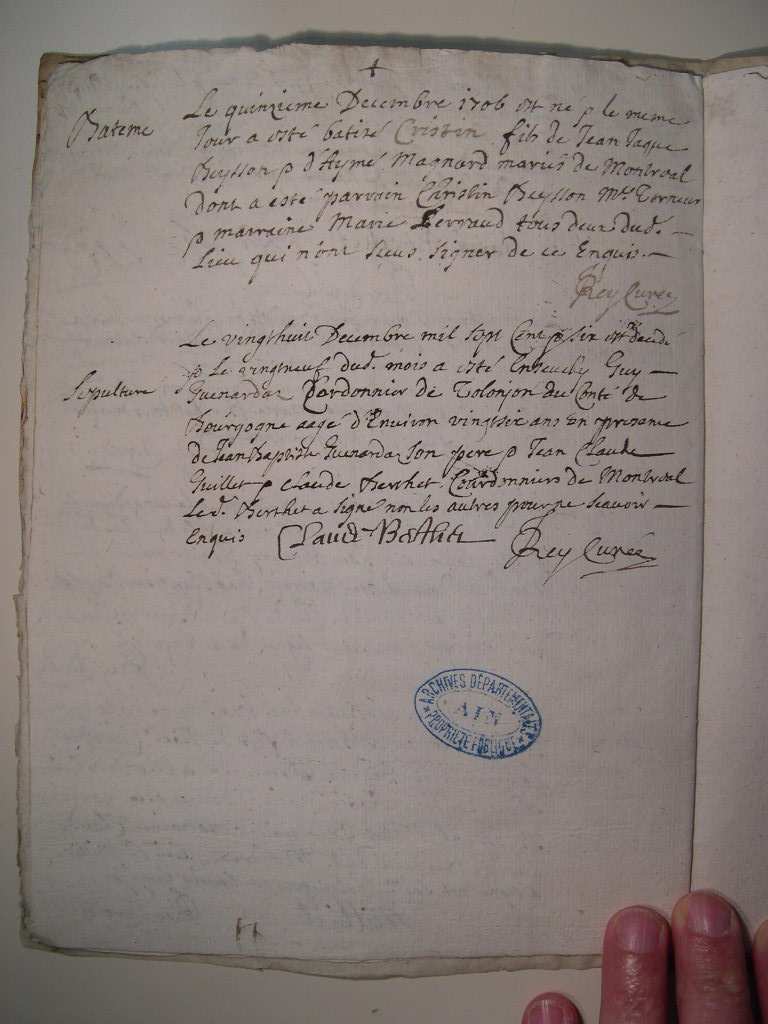 Bateme
Le quinzieme Decembre 1706 est né & le meme
Jour a esté batisé Cristin fils de Jean Jaque
Beysson & d'Aymé Magnard mariés de Montreal
dont a esté parrain Christin Beysson Me. Torneur
& marraine Marie tous deux dud.
Lieu qui n'ont sceus signer de ce Enquis.
Rey Curé
Sepulture
Le vingthuit Decembre mil sept Cent & six est decedé
& Le vingtneuf dud. mois a esté Ensevely Guy
Guenardat Cordonnier de Tolonjon au Conté de
Bourgogne aagé d'Environ vingtsix ans En presence
de Jean Baptiste Guenardat son pere & Jean Claude
Guillet & Claude Berthet Courdonniers de Montreal
Led. Berthet a signé non les autres pour ne scavoir
Enquis Claude Berthet
Rey Curé
ARCHIVES DEPARTEMENTALES
AIN
PROPRIETE PUBLIQUE